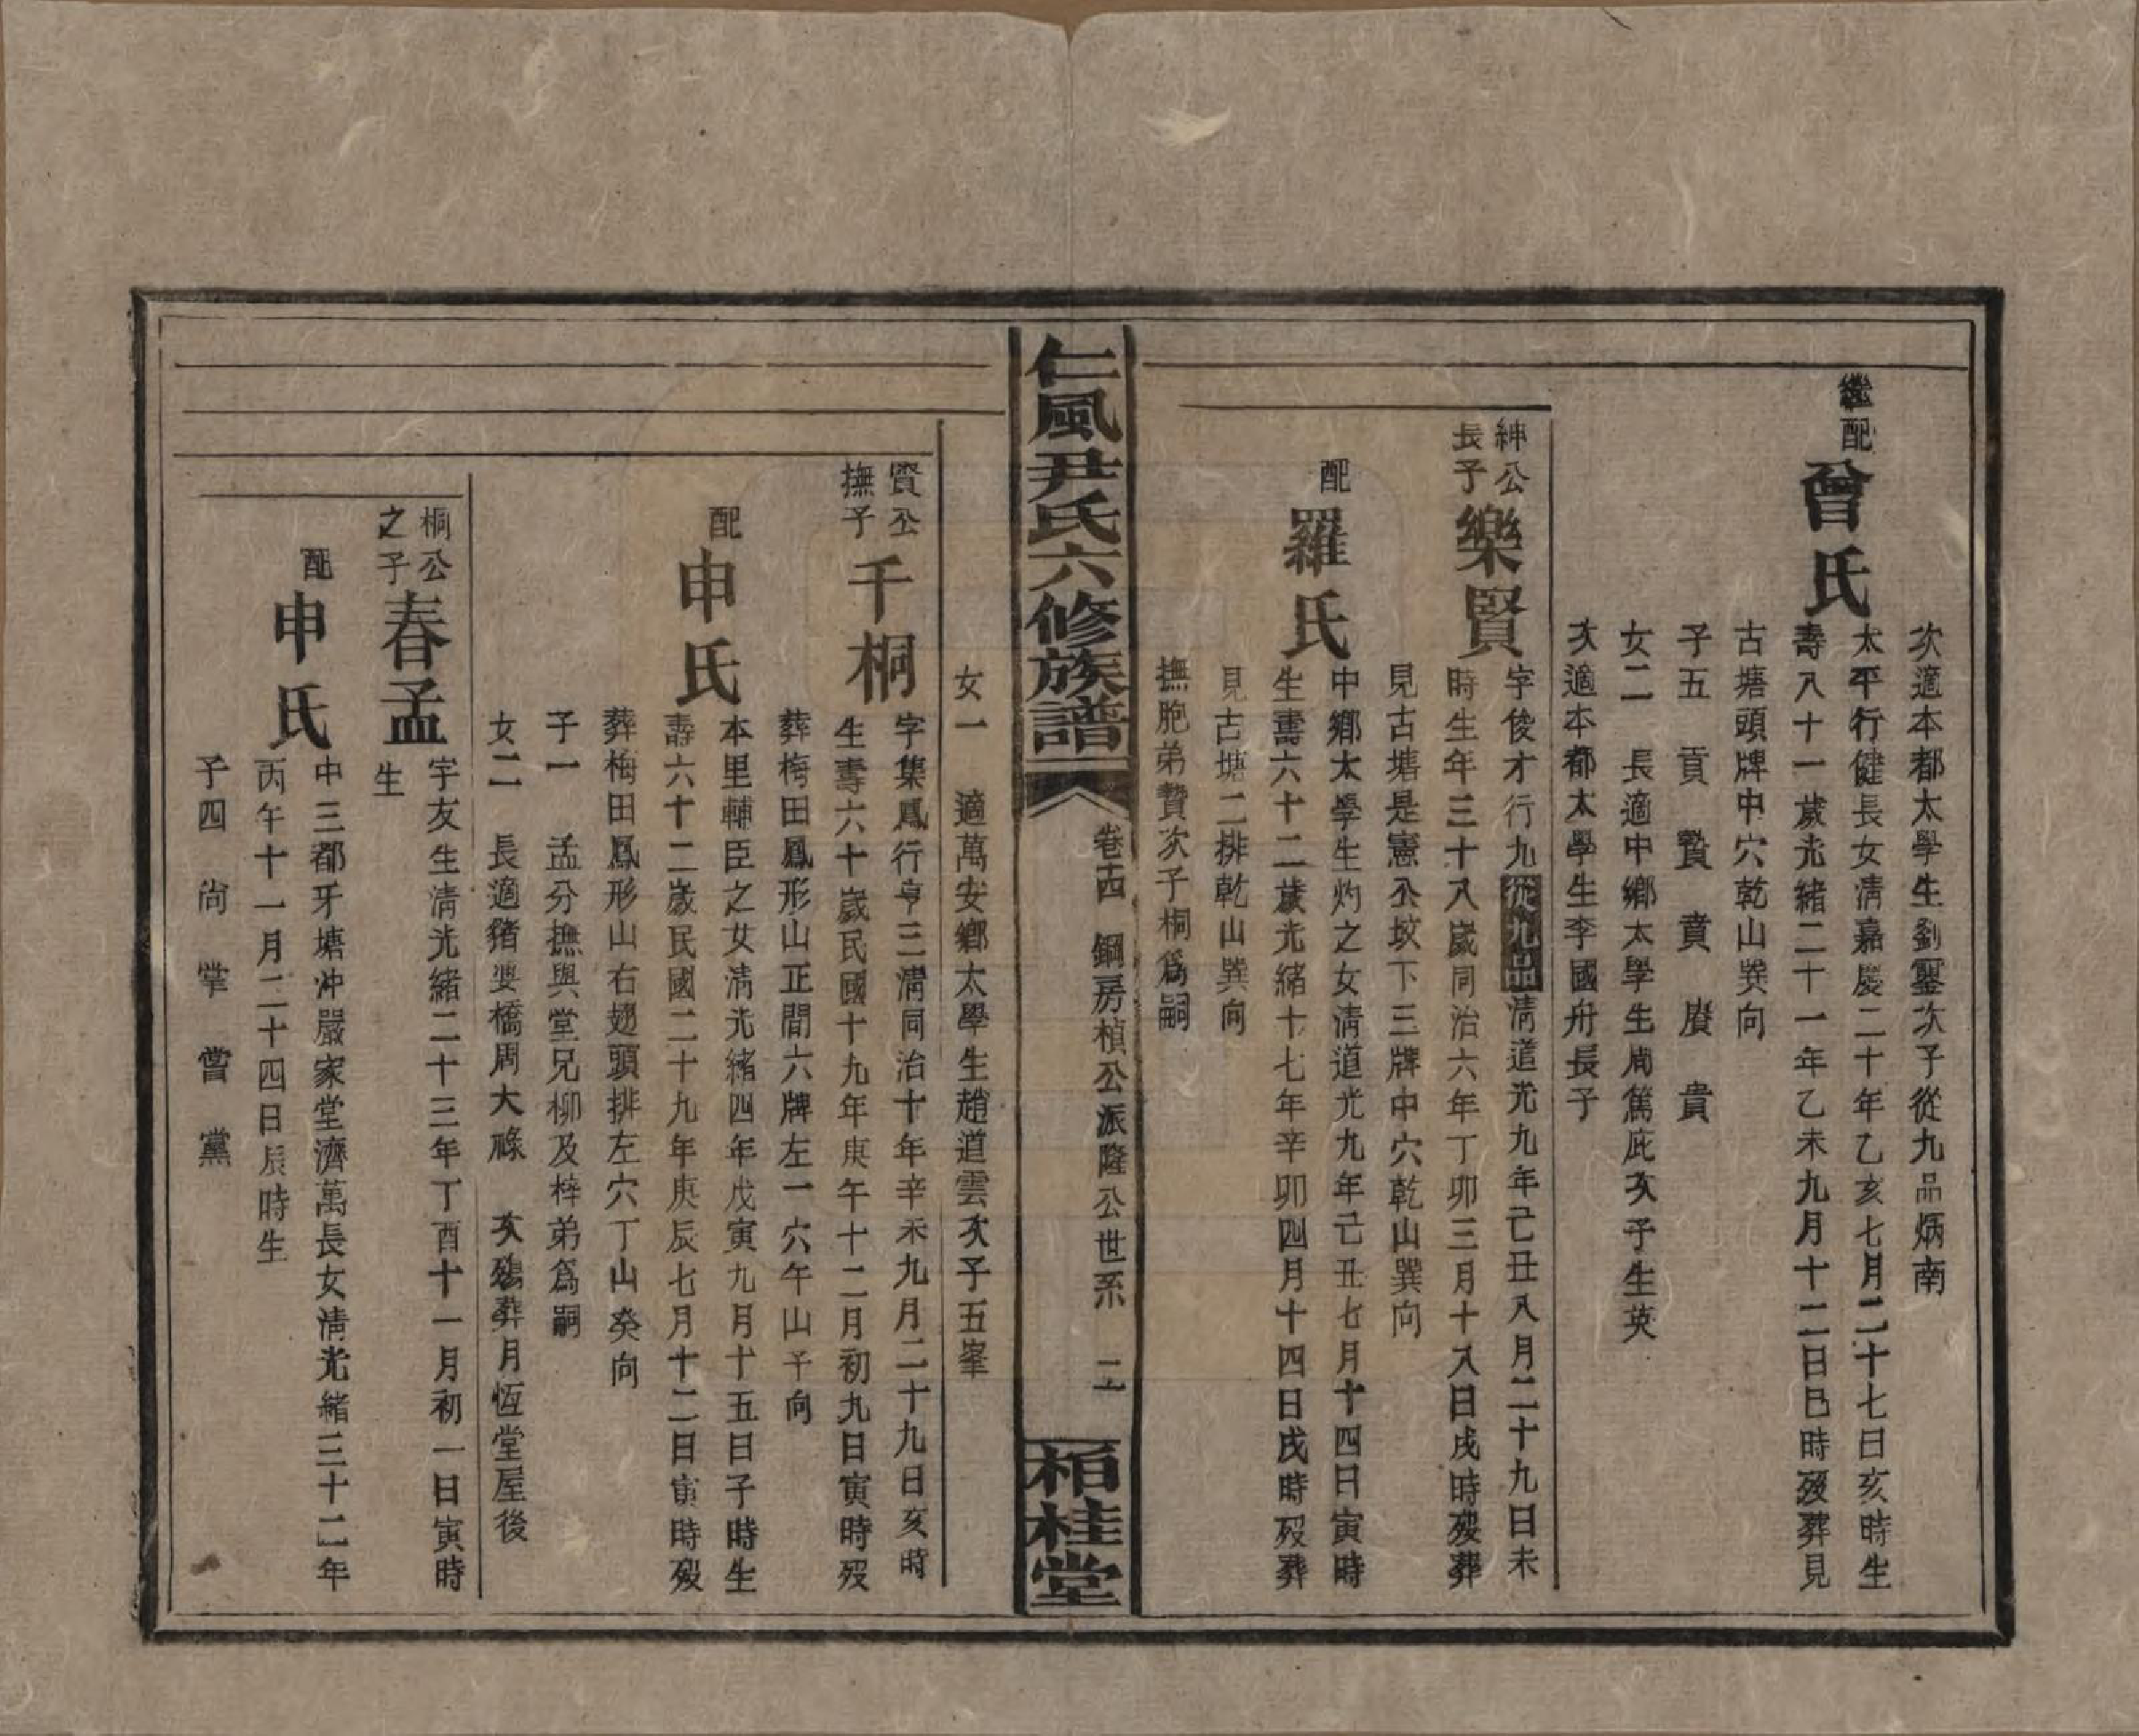 次適本都太學生劉璽次子從九品炳南
繼配
曾氏
太平行健長女清嘉慶二十年乙亥七月二十七日亥時生
壽八十一歲光緒二十一年乙未九月十二日巳時歿葬見
古塘頭牌中穴乾山巽向
子五 貢 贊 賁 賡 貴
女二 長適中鄉太學生周篤庇次子生英
次適本都太學生李國舟長子
紳公
長子
樂賢
字俊才行九從九品清道光九年己丑八月二十九日未
時生年三十八歲同治六年丁卯三月十八日戌時歿葬
見古塘是憲公墳下三牌中穴乾山巽向
配
羅氏
中鄉太學生灼之女清道光九年己丑七月十四日寅時
生壽六十二歲光緒十七年辛卯四月十四日戌時歿葬
見古塘二排乾山巽向
撫胞弟贊次子桐爲嗣
仁風尹氏六修族譜
卷十四 鋼房楨公派隆公世系 二
栢桂堂
女一 適萬安鄉太學生趙道雲次子五峯
賢公
撫子
千桐
字集鳳行亨三清同治十年辛未九月二十九日亥時
生壽六十歲民國十九年庚午十二月初九日寅時歿
葬梅田鳳形山正間六牌左一穴午山子向
配
申氏
本里輔臣之女清光緒四年戊寅九月十五日子時生
壽六十二歲民國二十九年庚辰七月十二日寅時歿
葬梅田鳳形山右翅頭排左穴丁山癸向
子一 孟分撫與堂兄柳及梓弟爲嗣
女二 長適豬婆橋周大祿 次殤葬月恆堂屋後
桐公
之子
春孟
字友生清光緒二十三年丁酉十一月初一日寅時
生
配
申氏
中三都牙塘沖嚴家堂濟萬長女清光緒三十二年
丙午十一月二十四日辰時生
子四 尚 掌 嘗 黨